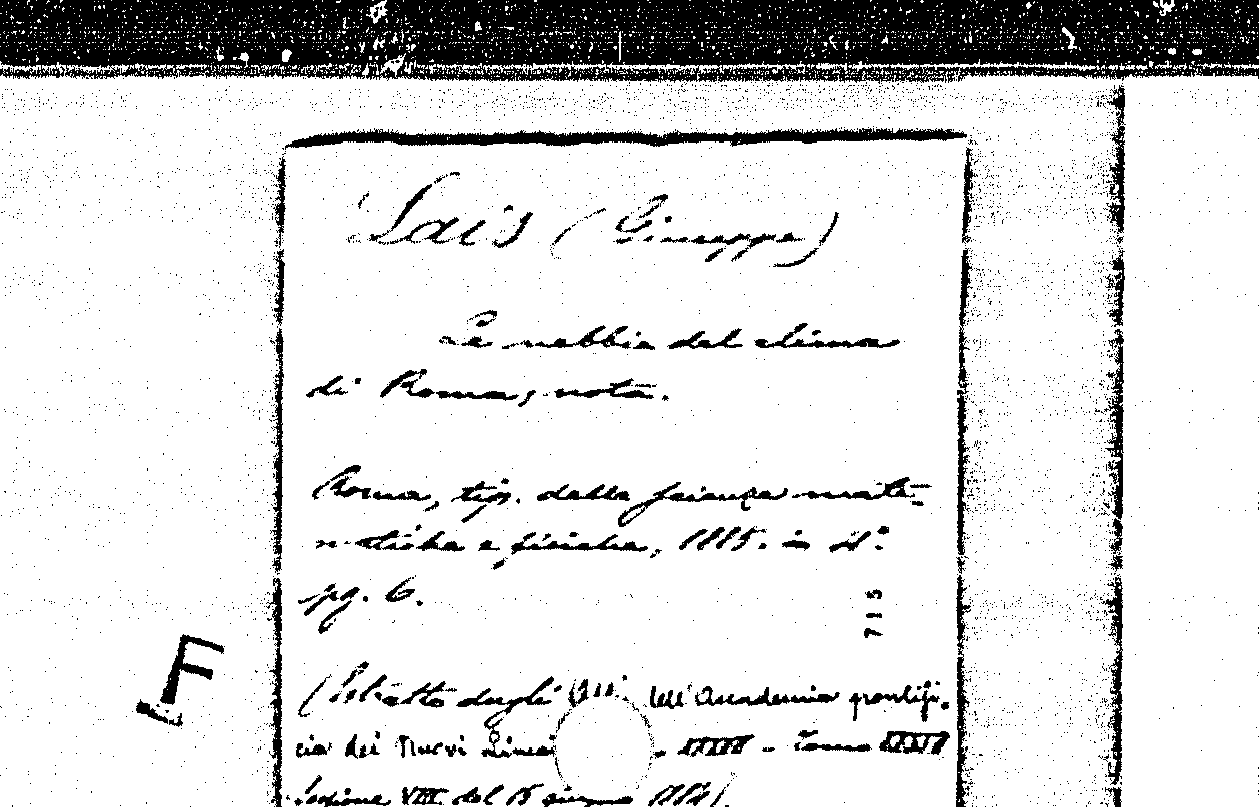 Lais (Giuseppe)
Le nebbie del clima
di Roma, nota.
Roma, tip. delle scienze mate-
matiche e fisiche, 1885. in 4°.
pg. 6.
715
F
(Estratto dagli Atti dell'Accademia pontifi-
cia dei Nuovi Lincei - - Tomo
Sessione VIIª del 15 giugno 1884).